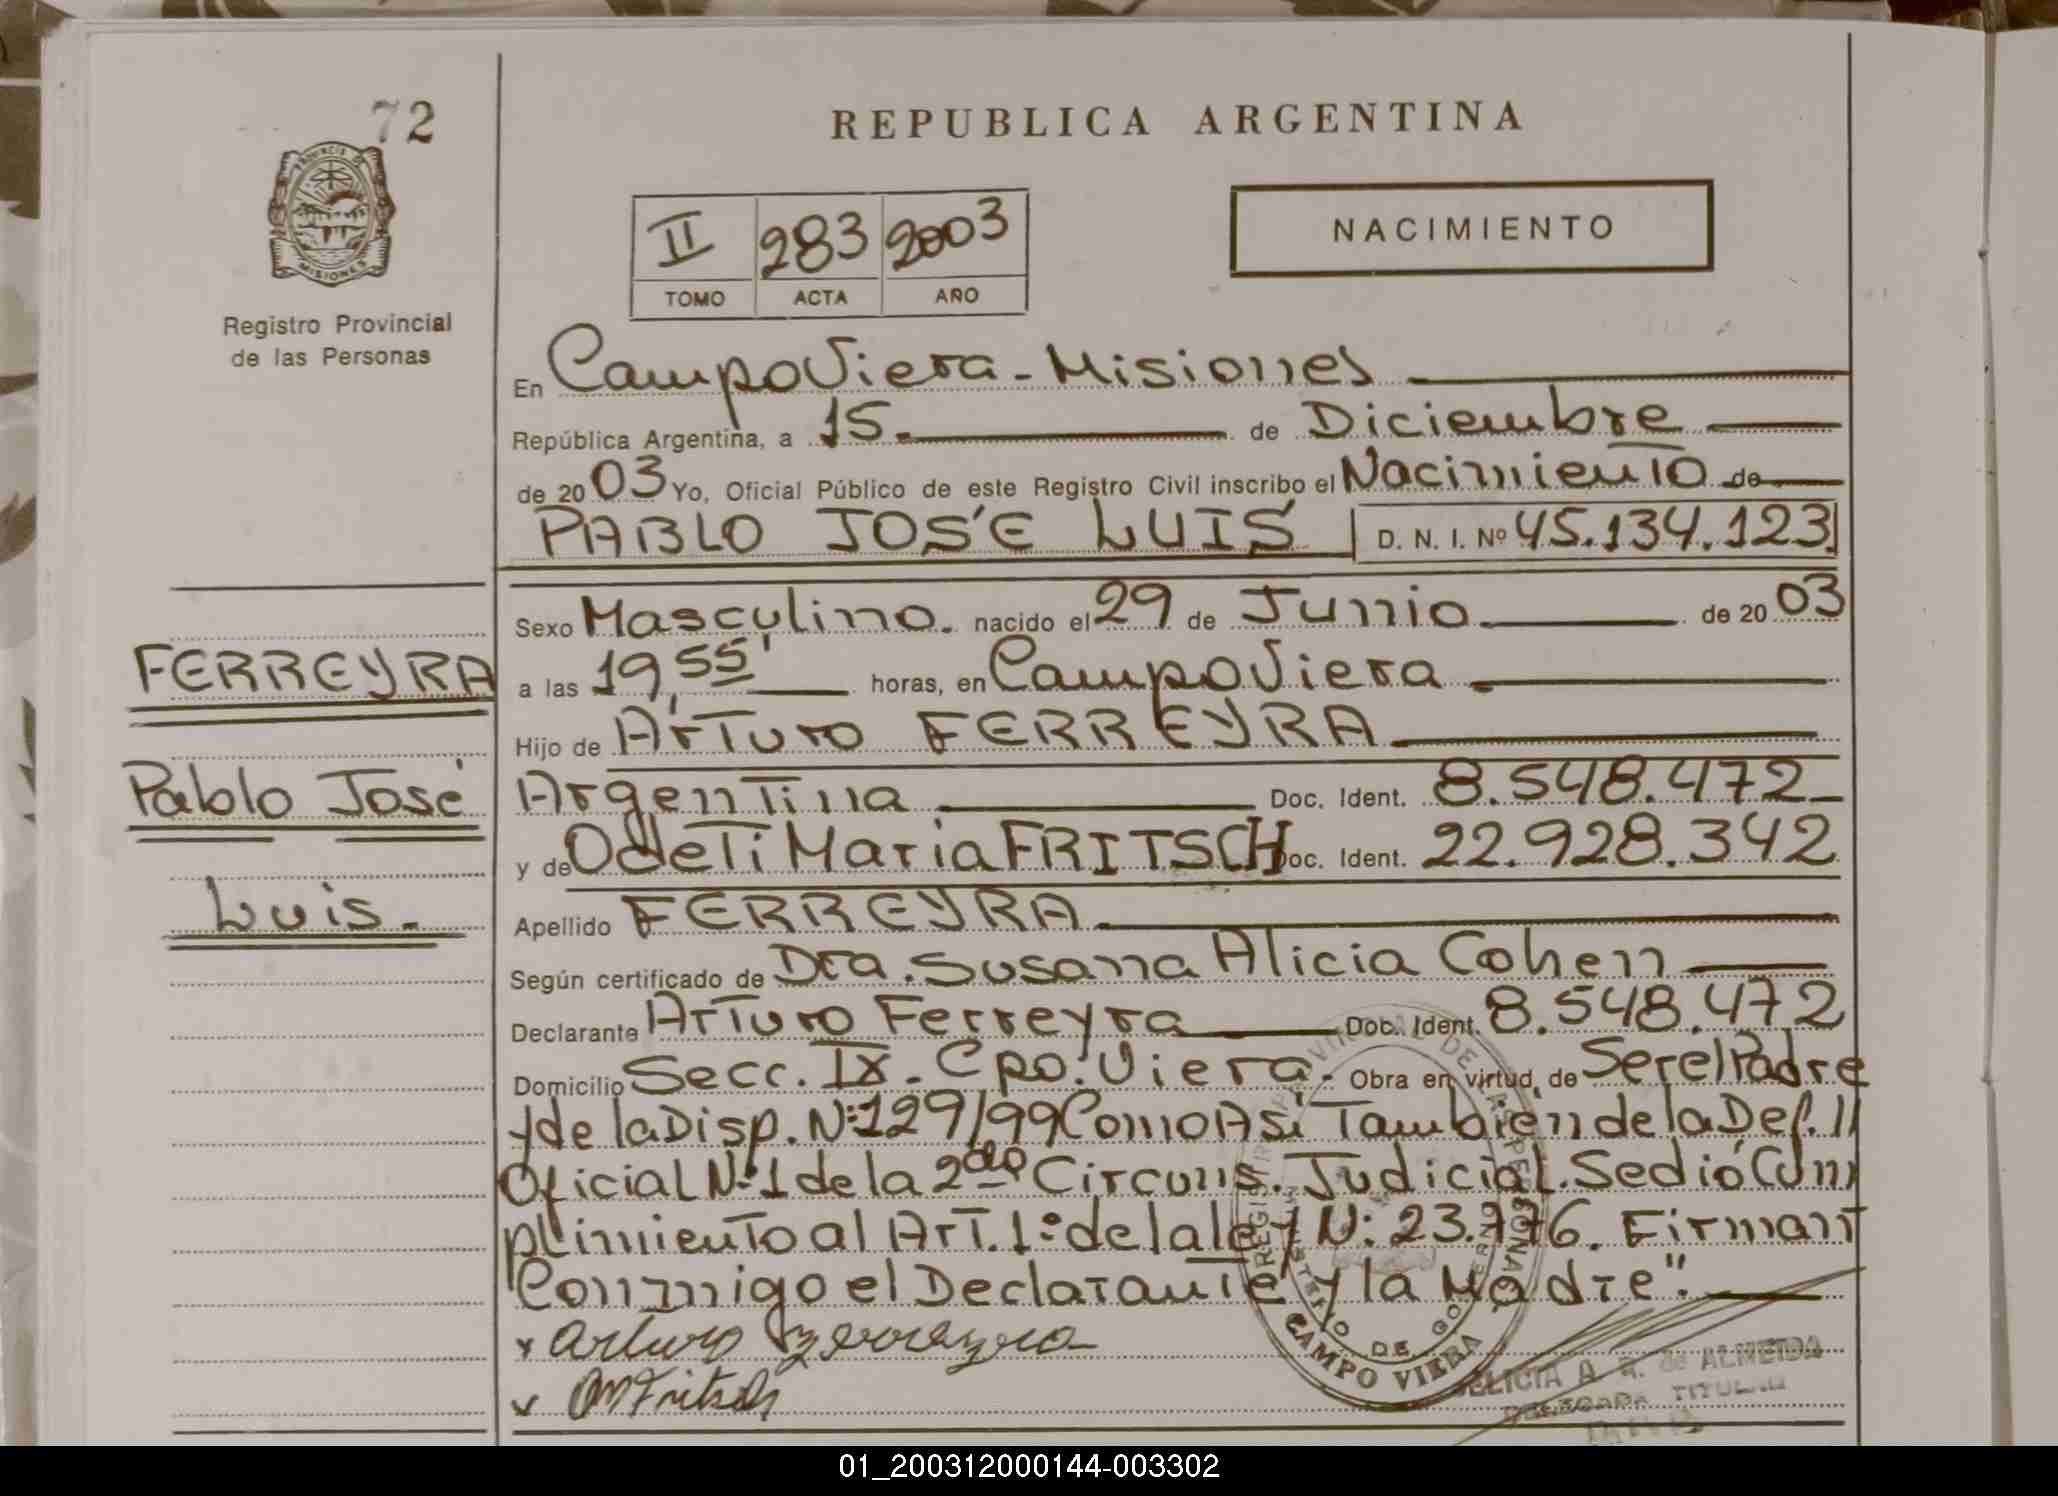 72
REPUBLICA ARGENTINA
PROVINCIA DE
MISIONES
Registro Provincial
de las Personas
II 283 2003
TOMO ACTA AÑO
NACIMIENTO
En Campo Viera - Misiones
República Argentina, a 15. de Diciembre
de 2003 Yo, Oficial Público de este Registro Civil inscribo el Nacimiento de
PABLO JOSÉ LUIS D. N. I. Nº 45.134.123
Sexo Masculino. nacido el 29 de Junio de 2003
a las 19,55' horas, en Campo Viera
Hijo de Arturo FERREYRA
Argentina Doc. Ident. 8.548.472
y de Odeti Maria FRITSCH Doc. Ident. 22.928.342
Apellido FERREYRA
Según certificado de Dra. Susana Alicia Cohen
Declarante Arturo Ferreyra Doc. Ident. 8.548.472
Domicilio Secc. IX. Cpo. Viera. Obra en virtud de Ser el Padre
y de la Disp. Nº 129/99 Como Asi También de la Def. II
Oficial Nº 1 de la 2da Circuns. Judicial. Se dió Cum
plimiento al Art. 1º de la ley Nº 23.776. Firman
Conmigo el Declarante y la Madre".
x Arturo Ferreyra
x OMFritsch
FERREYRA
Pablo José
Luis.
CAMPO VIERA
FELICIA A. R. de ALMEIDA
DELEGADA TITULAR
01_200312000144-003302